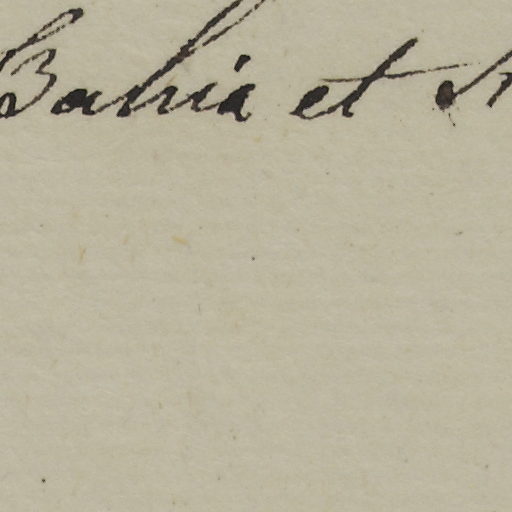 Bahia et